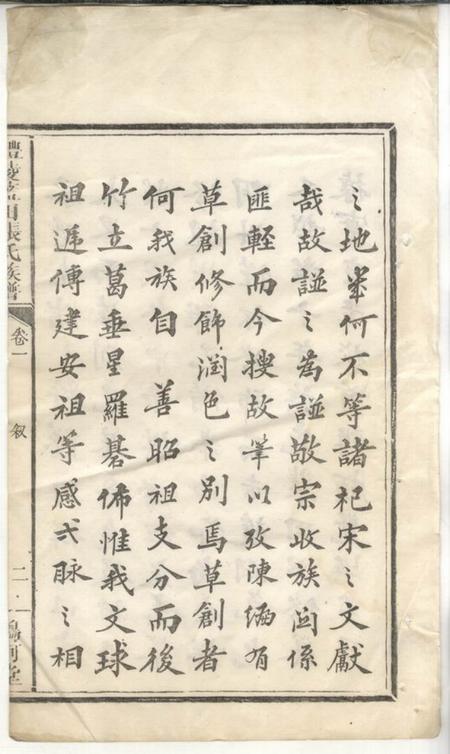 之地幾何不等諸杞宋之文獻
哉故諡之為諡敬宗收族関係
匪輕而今搜故筆以攷陳編有
草創修飾润色之別焉草創者
何我族自 善昭祖支分而後
竹立葛垂星羅碁佈惟我文球
祖遞傳建安祖等感弌脉之相
醴陵 張氏族譜 卷一 叙 二 堂